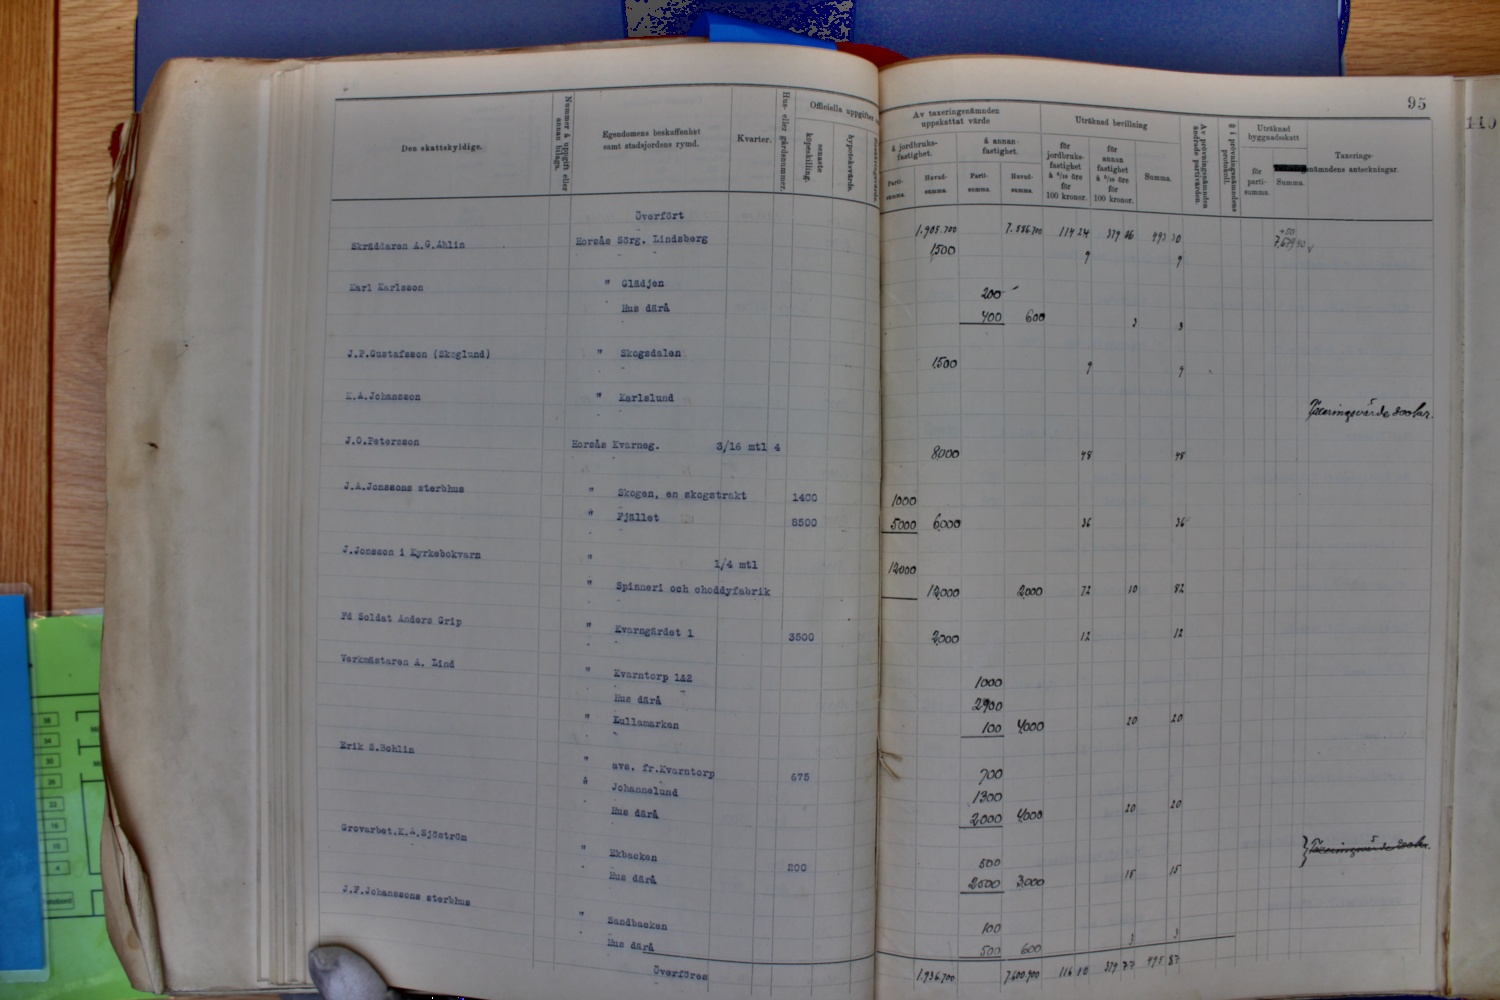 95
110
Den skattskyldige.
Nummer å uppgift eller annan bilaga.
Egendomens beskaffenhet samt stadsjordens rymd.
Kvarter.
Hus- eller gårdsnummer.
Officiella uppgifter
senaste köpeskilling.
hypoteksvärde.
Av taxeringsnämnden uppskattat värde
å jordbruksfastighet.
å annan fastighet.
Parti-summa.
Huvud-summa.
Parti-summa.
Huvud-summa.
Uträknad bevillning
för jordbruks-fastighet à 6/10 öre för 100 kronor.
för annan fastighet à 5/10 öre för 100 kronor.
Summa.
Av prövningsnämnden ändrade partivärden.
§ i prövningsnämndens protokoll.
Uträknad byggnadsskatt
för parti-summa.
Summa.
Taxerings-nämndens anteckningar.
Överfört 1.905.700 114 24 379 06 493 30
Skräddaren A.G.Ahlin Horsås Sörg. Lindsberg 1,500 9 9
Karl Karlsson " Glädjen 200
Hus därå 400 600 3 3
J.P.Gustafsson (Skoglund) " Skogsdalen 1,500 9 9
K.A.Johansson " Karlslund Taxeringsvärde 200 kr.
J.O.Petersson Horsås Kvarneg. 3/16 mtl 4 8,000 48 48
J.A.Jonssons sterbhus " Skogen, en skogstrakt 1400 1000
" Fjället 8500 5000 6,000 36 36
J.Jonsson i Kyrkebokvarn " 1/4 mtl 12000
" Spinneri och choddyfabrik 12,000 2,000 72 10 82
Fd Soldat Anders Grip " Kvarngärdet 1 3500 2,000 12 12
Verkmästaren A. Lind " Kvarntorp 1&2 1000
Hus därå 2900
" Kullamarken 100 4,000 20 20
Erik S.Bohlin " avs. fr.Kvarntorp 675 700
" Johannelund 1300
Hus därå 2000 4,000 20 20
Grovarbet.K.A.Sjöström " Ekbacken 200 500 Taxeringsvärde 200 kr.
Hus därå 2500 3,000 15 15
J.F.Johanssons sterbhus " Sandbacken 100
Hus därå 500 600 3 3
Överföres 1.936.700 7.600.900 116 10 379 77 495 87